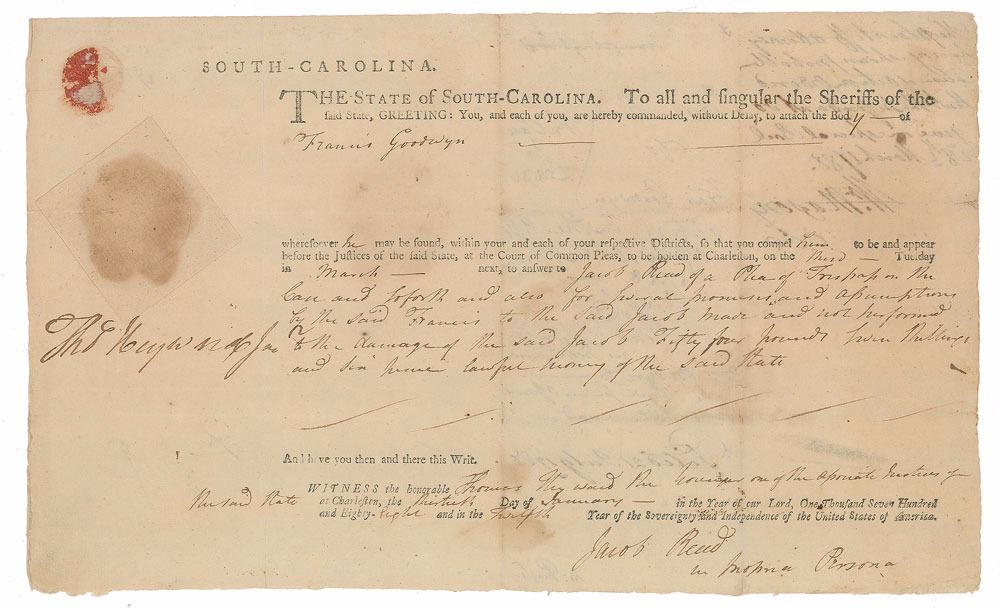 SOUTH-CAROLINA.
THE STATE of SOUTH-CAROLINA. To all and singular the Sheriffs of the
said State, GREETING: You, and each of you, are hereby commanded, without Delay, to attach the Body of
Francis Goodwyn
wheresoever he may be found, within your and each of your respective Districts, so that you compel him to be and appear
before the Justices of the said State, at the Court of Common Pleas, to be holden at Charleston, on the third Tuesday
in March next, to answer to Jacob Read of a Plea of Trespass on the
Case and soforth and also for several promises and assumptions
by the said Francis to the said Jacob made and not performed
Tho Heyward Jun
to the damage of the said Jacob Fifty four pounds seven shillings
and six pence lawful money of the said State
And have you then and there this Writ.
WITNESS the honorable Thomas Heyward the Younger one of the Associate Justices of
the said State at Charleston, the thirtieth Day of January in the Year of our Lord, One Thousand Seven Hundred
and Eighty-eight and in the Twelfth Year of the Sovereignty and Independence of the United States of America.
Jacob Read
in propria Persona